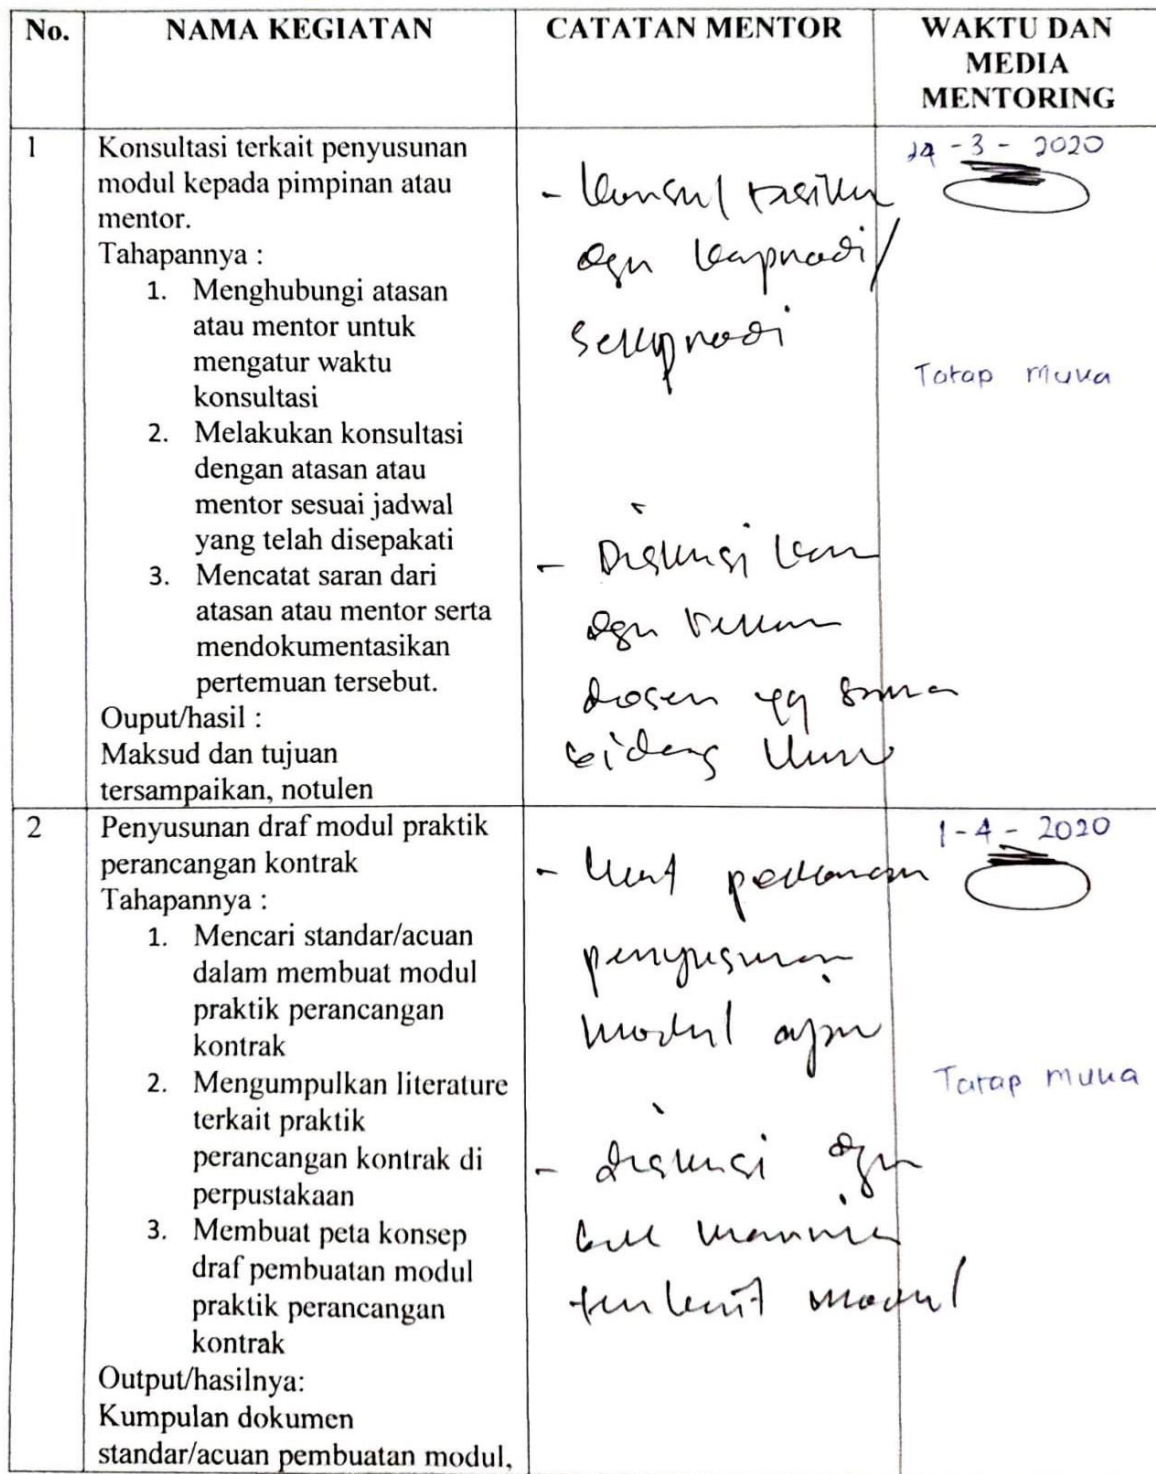 No.
NAMA KEGIATAN
CATATAN MENTOR
WAKTU DAN
MEDIA
MENTORING
1
Konsultasi terkait penyusunan
modul kepada pimpinan atau
mentor.
Tahapannya :
1. Menghubungi atasan
atau mentor untuk
mengatur waktu
konsultasi
2. Melakukan konsultasi
dengan atasan atau
mentor sesuai jadwal
yang telah disepakati
3. Mencatat saran dari
atasan atau mentor serta
mendokumentasikan
pertemuan tersebut.
Ouput/hasil :
Maksud dan tujuan
tersampaikan, notulen
- Konsultasikan
dgn kaprodi/
sekprodi
- Diskusikan
dgn rekan
dosen yg sama
bidang ilmu
24 - 3 - 2020
Tatap muka
2
Penyusunan draf modul praktik
perancangan kontrak
Tahapannya :
1. Mencari standar/acuan
dalam membuat modul
praktik perancangan
kontrak
2. Mengumpulkan literature
terkait praktik
perancangan kontrak di
perpustakaan
3. Membuat peta konsep
draf pembuatan modul
praktik perancangan
kontrak
Output/hasilnya:
Kumpulan dokumen
standar/acuan pembuatan modul,
- pedoman
penyusunan
modul ajar
- diskusi dgn
terkait modul
1 - 4 - 2020
Tatap muka